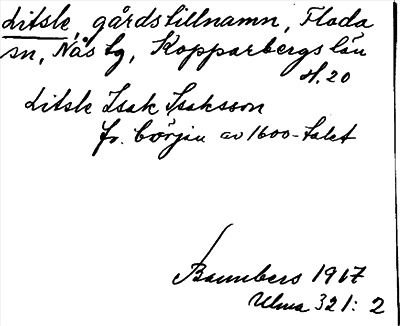 Litsle, gårdstillnamn, Floda
sn, Nås tg, Kopparbergs län
H. 20
Litsle Isak Isaksson
fr. början av 1600-talet
Bannbers 1917
Ulma 321: 2